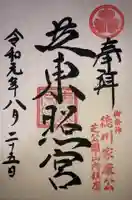 奉拝
御祭神
徳川家康公
芝公園
芝東照宮
令和元年八月二十五日